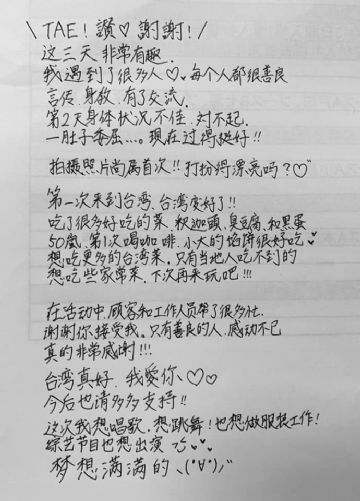 \ TAE! 讚♡謝謝! /
这三天 非常有趣.
我遇到了很多人♡. 每个人都很善良
言传. 身教. 有了交流.
第2天身体状况不佳. 対不起.
一肚子委屈...。现在过得挺好!!
拍摄照片尚属首次!! 打扮得漂亮吗?♡
第一次来到台湾. 台湾变好了!!
吃了很多好吃的菜. 釈迦頭. 臭豆腐. 和黒蛋
50嵐. 第1次喝咖啡. 小大的馅饼很好吃
想吃更多的台湾菜. 只有当地人吃不到的
想吃些家常菜. 下次再来玩吧!!!
在活动中. 顾客和工作人员帮了很多忙.
谢谢你接受我. 只有善良的人. 感动不已
真的非常感谢!!!
台湾真好. 我爱你♡♡
今后也请多多支持!!
这次我想唱歌. 想跳舞! 也想做服装工作!
综艺节目也想出演
梦想满满的 ヽ(°∀°)ﾉ